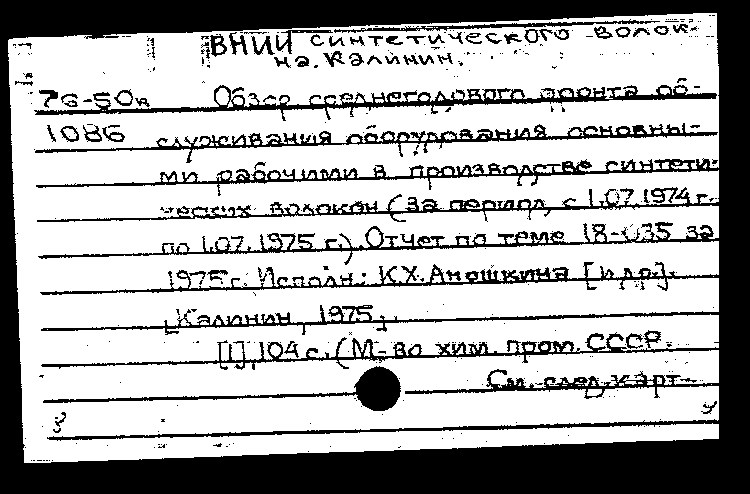 ВНИИ синтетического волок-
на. Калинин.
76-50к Обзор среднегодового фронта об-
1086 служивания оборудования основны-
ми рабочими в производстве синтети-
ческих волокон (за период с 1.07.1974 г.
по 1.07.1975 г.). Отчет по теме 18-035 за
1975 г. Исполн.: К.Х. Аношкина [и др.].
[Калинин, 1975].
[1], 104 с. (М-во хим. пром. СССР.
См. след. карт-